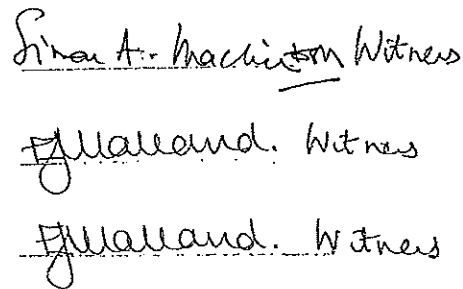 Simon A. Mackintosh Witness
EJMalland. Witness
EJMalland. Witness